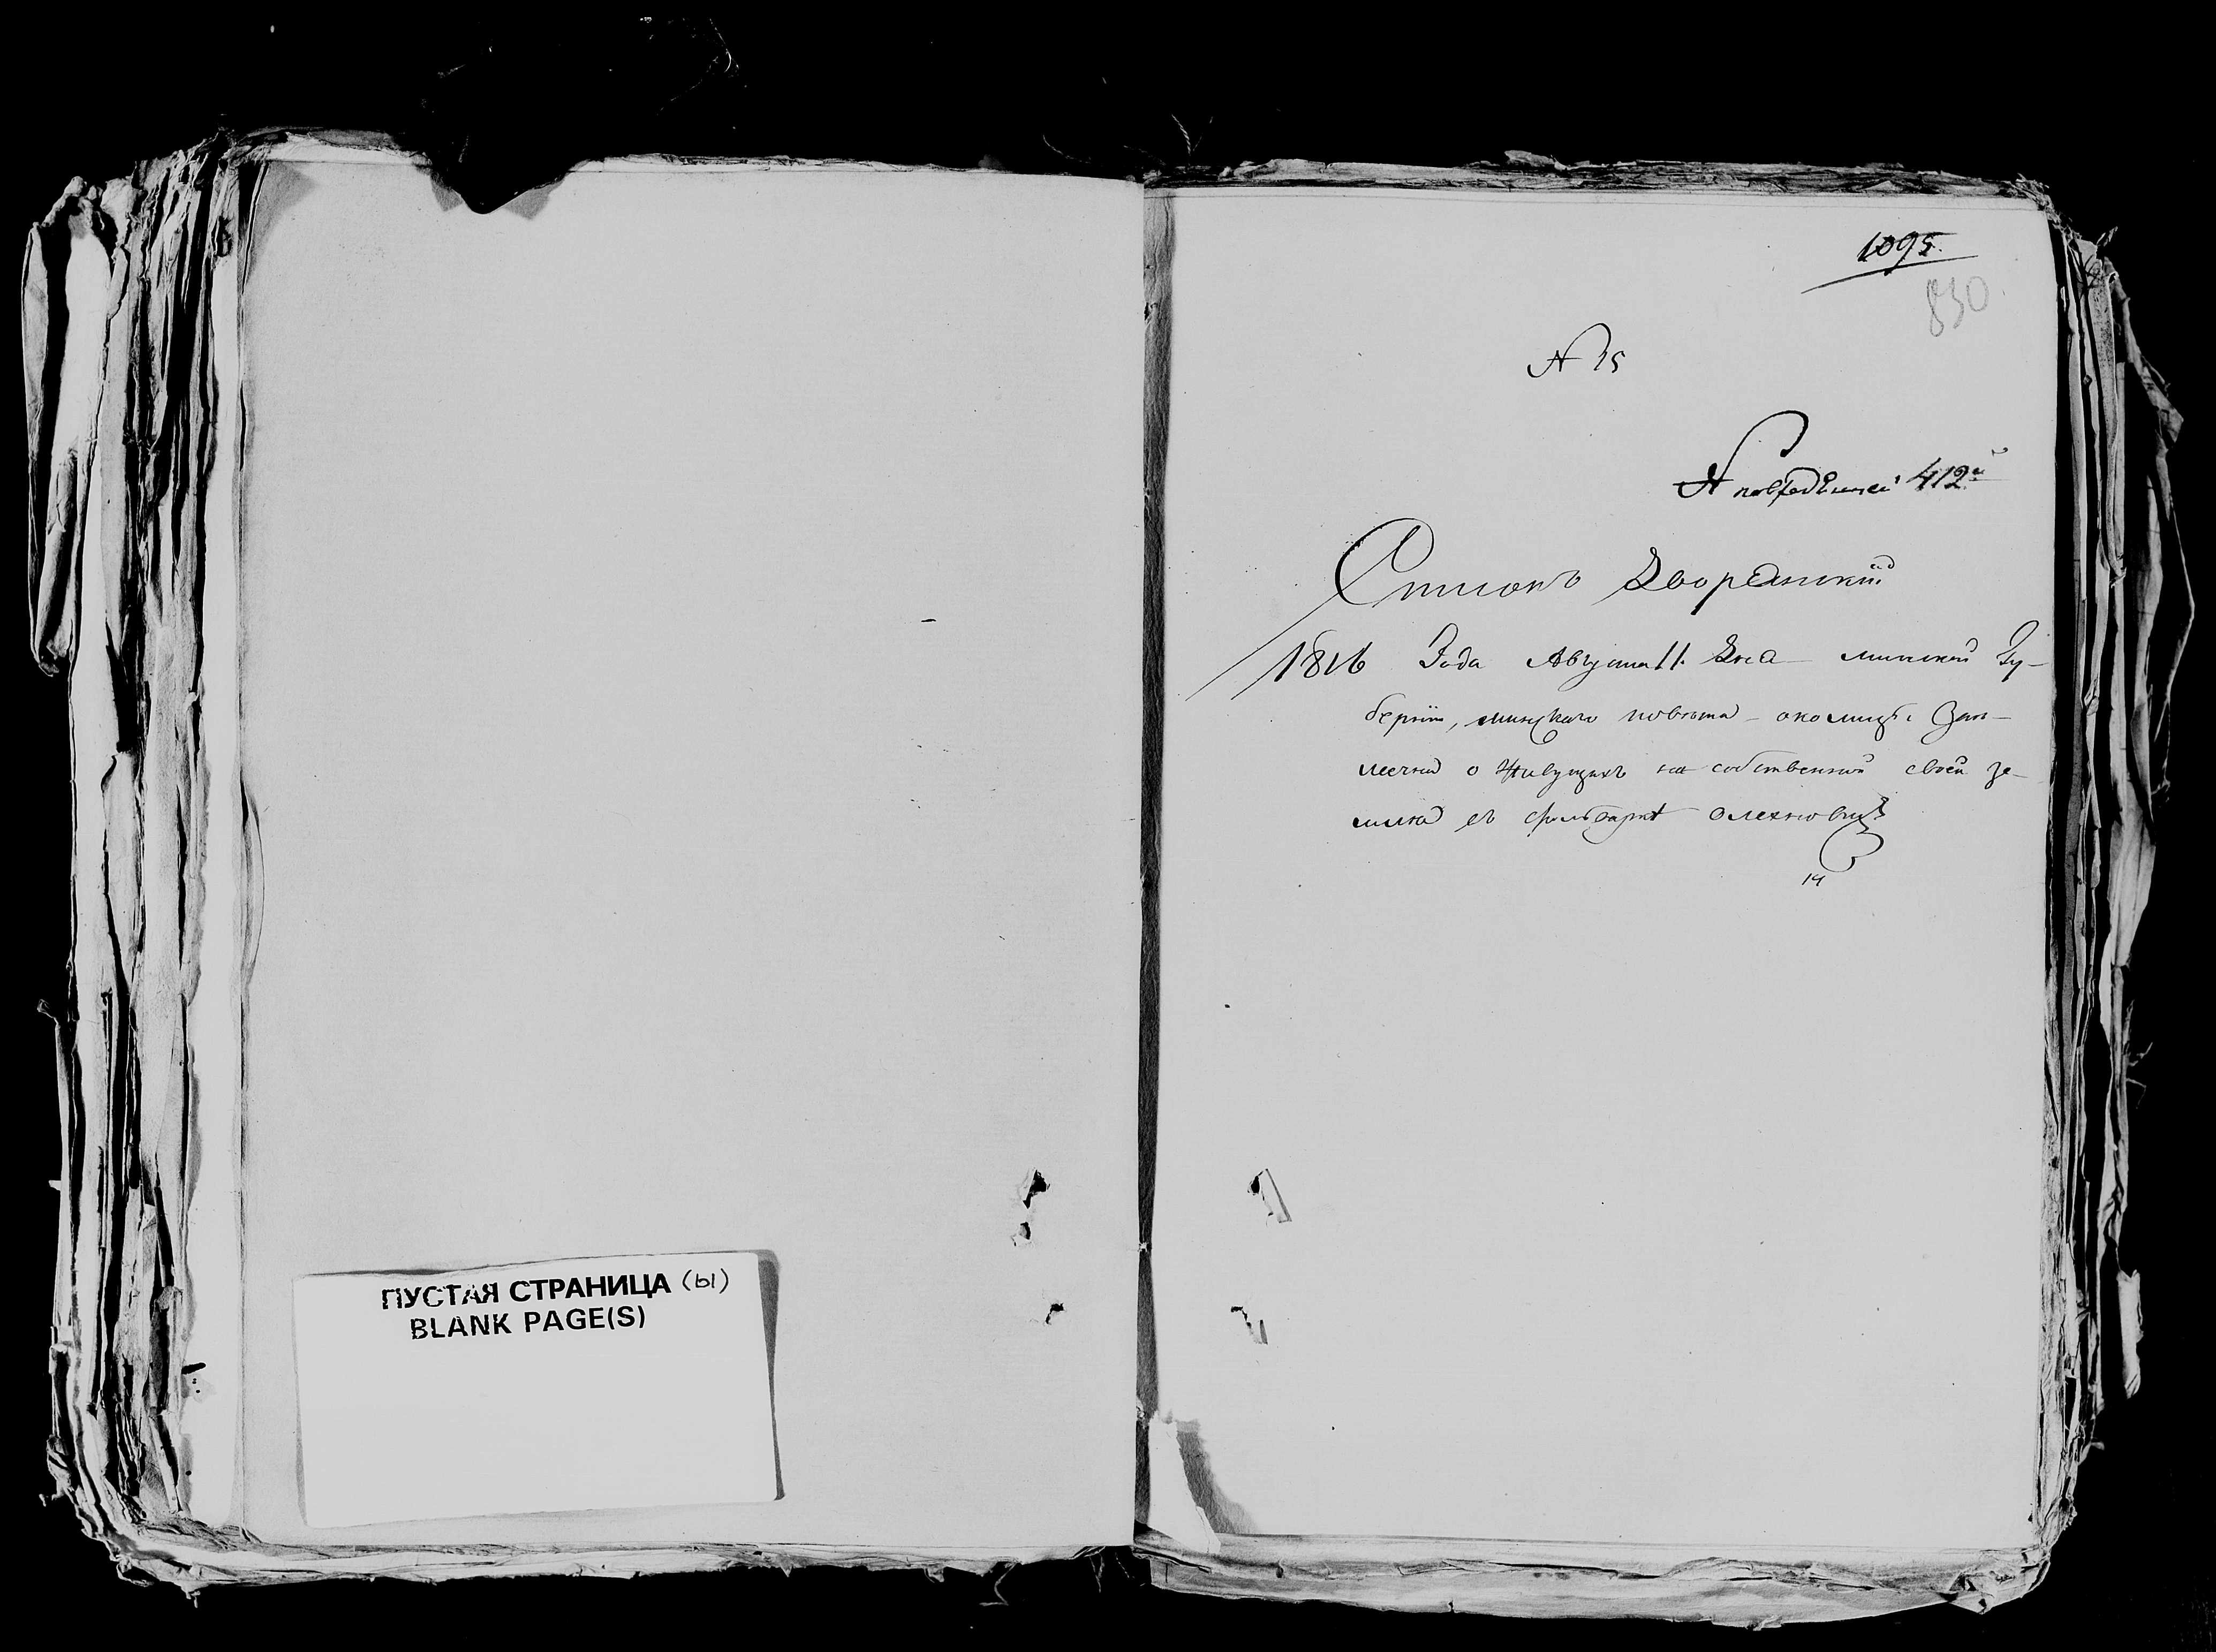 ПУСТАЯ СТРАНИЦА (ы)
BLANK PAGE(S)
1095.
830
N 15
N 412й
Списокъ Дворянский
1816 Года Августа 11. Дня минской Гу-
берніи, минскаго повѣта околицы
о живущихъ на собственной своей зе-
мли въ фольваркѣ Олехнович
14